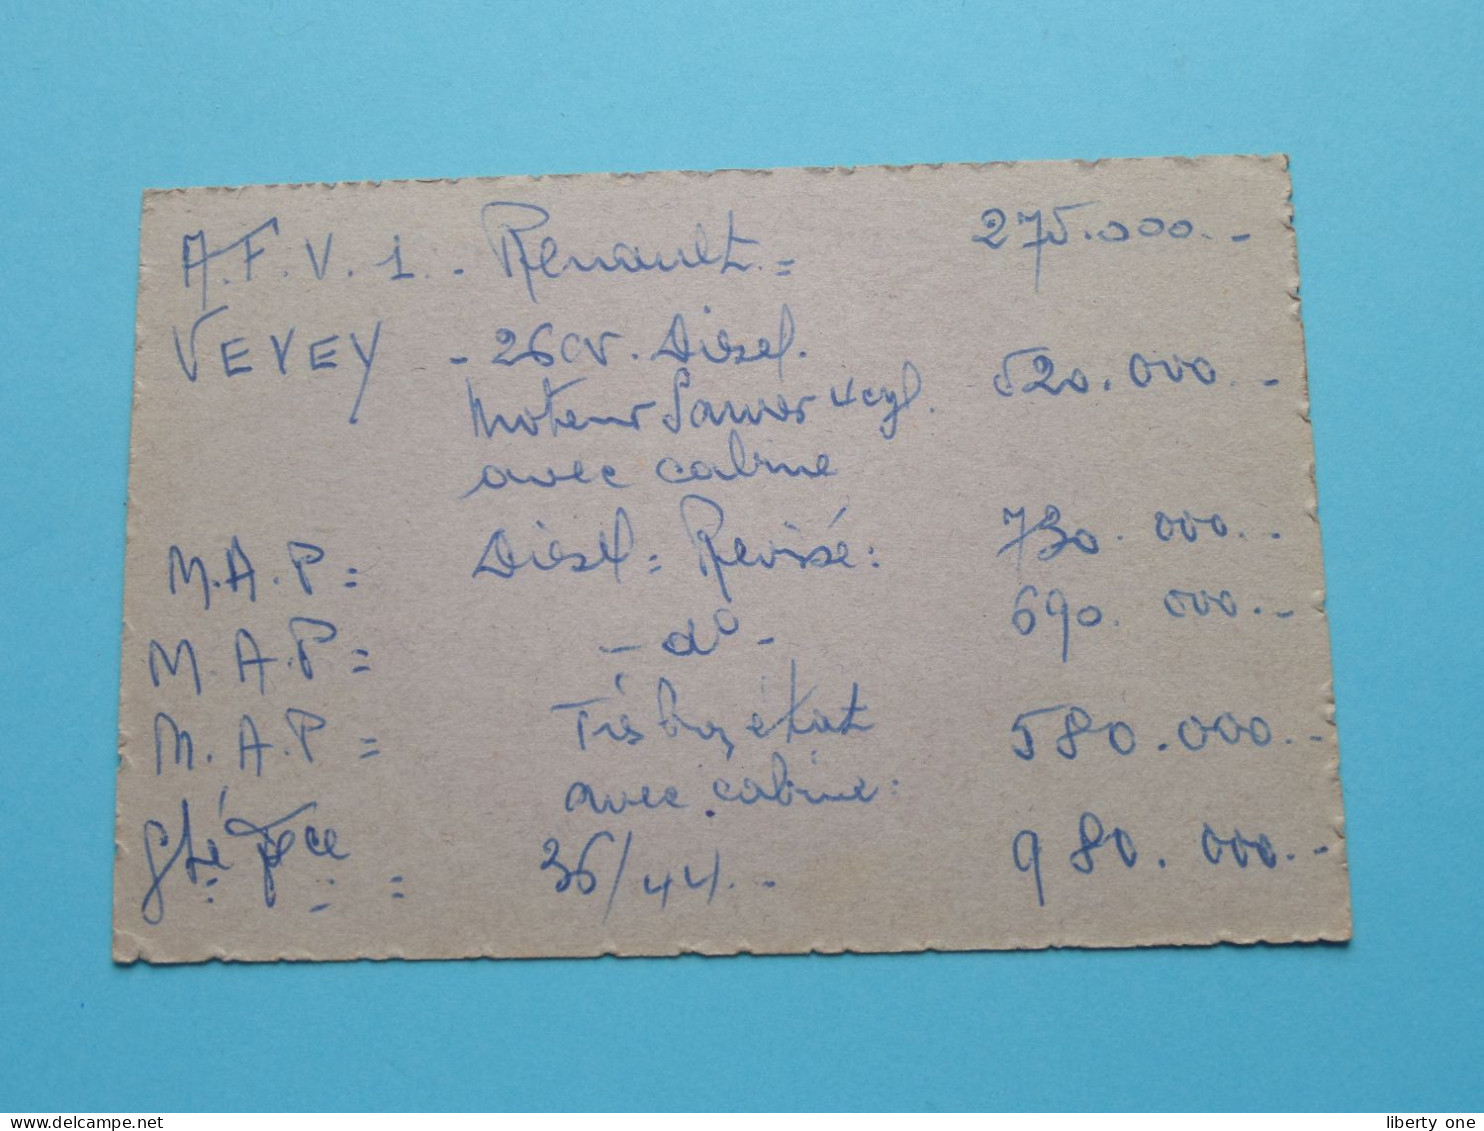 A.F.V.1. - Renault. = 275.000.-
VEVEY - 26 CV. Diésel.
Moteur Saurer 4 cyl. 520.000.-
avec cabine
M.A.P = Diésel = Revisé : 730.000.-
M.A.P = - d° - 690.000.-
M.A.P = Très bon état 580.000.-
avec cabine :
Sté = 36/44.- 980.000.-
delcampe.net
liberty one